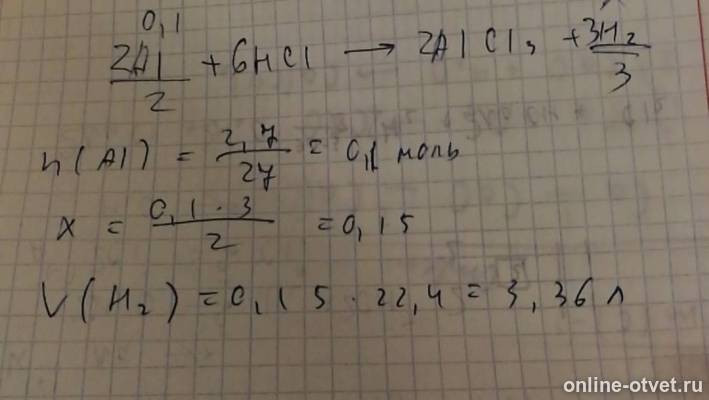 0,1 x
2Al + 6HCl → 2AlCl3 + 3H2
2 3
n(Al) = 2,7 / 27 = 0,1 моль
x = 0,1 · 3 / 2 = 0,15
V(H2) = 0,15 · 22,4 = 3,36 л
online-otvet.ru